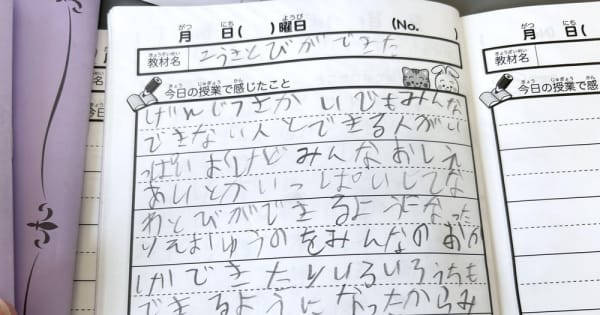 がつ にち ようび
月 日( )曜日 (No. )
きょうざいめい
教材名 こうさとびができた
きょう じゅぎょう かん
今日の授業で感じたこと
げんじつさかいでもみんな
できない人とできる人がい
っぱい けどみんなおしえ
あいとかいっぱいしてな
わとびができるようになった
りえま ゅうのをみんなのおか
げができたりいろいろうちも
できるようになったからみ
がつ にち
月 日(
きょうざいめい
教材名
きょう じゅぎょう かん
今日の授業で感